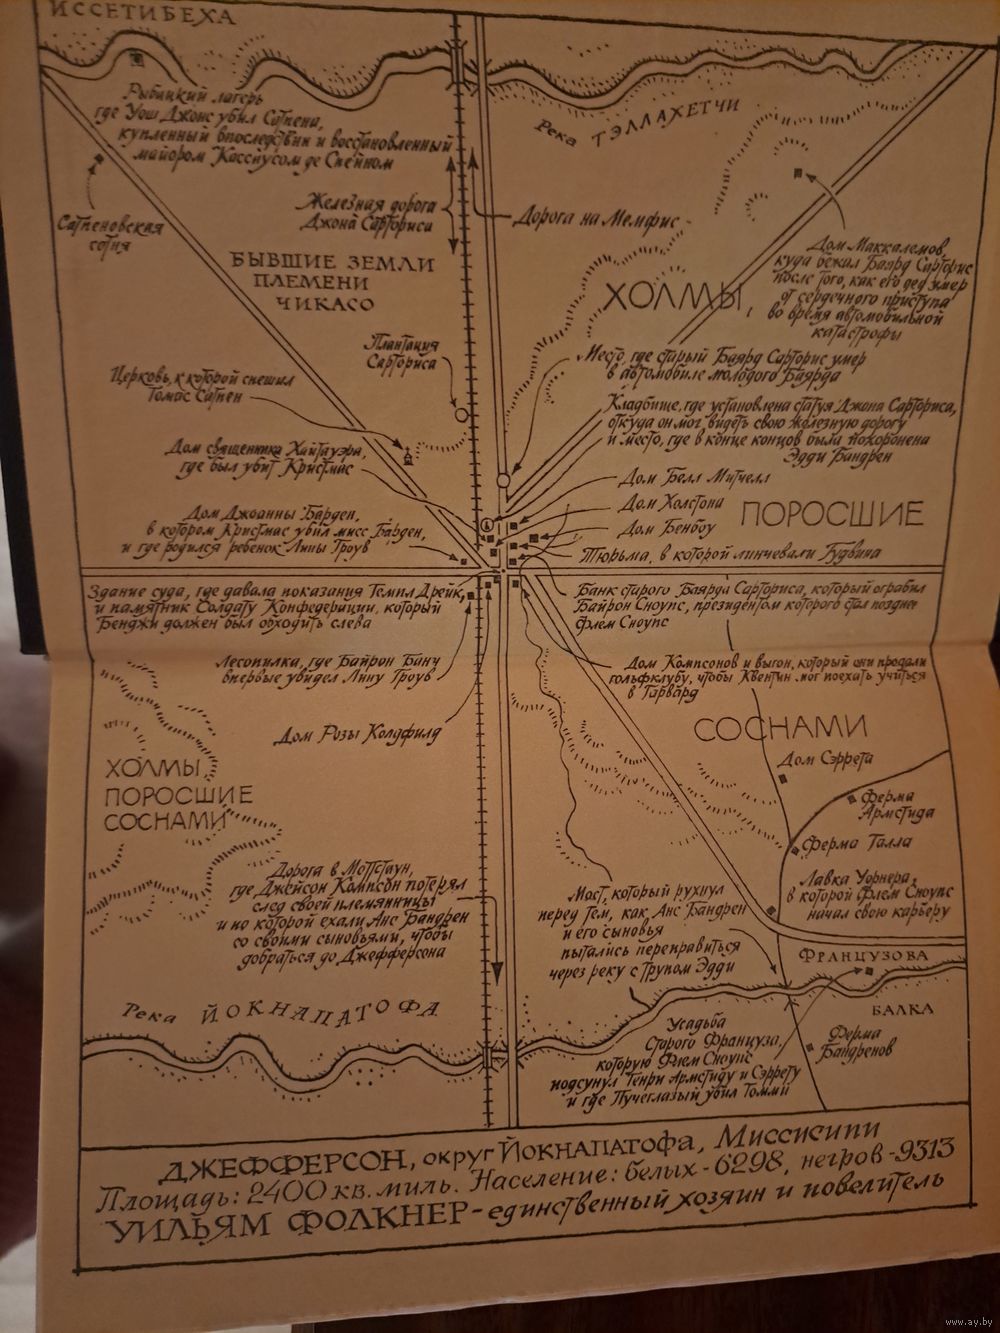 ИССЕТИБЕХА
Рыбацкий лагерь
где Уош Джонс убил Сатпена,
купленный впоследствии и восстановленный
майором Кассиусом де Спейном
Река ТЭЛЛАХЕТЧИ
Сатпеновская
сотня
Железная дорога
Джона Сарториса
Дорога на Мемфис
БЫВШИЕ ЗЕМЛИ
ПЛЕМЕНИ
ЧИКАСО
ХОЛМЫ,
Дом Маккалемов,
куда бежал Баярд Сарторис
после того, как его дед умер
от сердечного приступа
во время автомобильной
катастрофы
Плантация
Сарториса
Место, где старый Баярд Сарторис умер
в автомобиле молодого Баярда
Церковь, к которой спешил
Томас Сатпен
Кладбище, где установлена статуя Джона Сарториса,
откуда он мог видеть свою железную дорогу
и место, где в конце концов была похоронена
Эдди Бандрен
Дом священника Хайтауэра,
где был убит Кристмас
Дом Белл Митчелл
Дом Холстона
Дом Бенбоу
ПОРОСШИЕ
Дом Джоанны Барден,
в котором Кристмас убил мисс Барден,
и где родился ребенок Лины Гроув
Тюрьма, в которой линчевали Гудвина
Здание суда, где давала показания Темпл Дрейк,
и памятник Солдату Конфедерации, который
Бенджи должен был обходить слева
Банк старого Баярда Сарториса, который ограбил
Байрон Сноупс, президентом которого стал позднее
Флем Сноупс
Лесопилка, где Байрон Банч
впервые увидел Лину Гроув
Дом Компсонов и выгон, который они продали
гольфклубу, чтобы Квентин мог поехать учиться
в Гарвард
Дом Розы Колдфилд
СОСНАМИ
Дом Сэррета
ХОЛМЫ,
ПОРОСШИЕ
СОСНАМИ
Ферма
Армстида
Ферма Талла
Дорога в Моттстаун,
где Джейсон Компсон потерял
след своей племянницы
и по которой ехали Анс Бандрен
со своими сыновьями, чтобы
добраться до Джефферсона
Мост, который рухнул
перед тем, как Анс Бандрен
и его сыновья
пытались переправиться
через реку с трупом Эдди
Лавка Уорнера,
в которой Флем Сноупс
начал свою карьеру
ФРАНЦУЗОВА
БАЛКА
Река ЙОКНАПАТОФА
Усадьба
Старого Француза,
которую Флем Сноупс
подсунул Генри Армстиду и Сэррету
и где Пучеглазый убил Томми
Ферма
Бандренов
ДЖЕФФЕРСОН, округ ЙОКНАПАТОФА, Миссисипи
Площадь: 2400 кв. миль. Население: белых - 6298, негров - 9313
УИЛЬЯМ ФОЛКНЕР - единственный хозяин и повелитель
www.ay.by